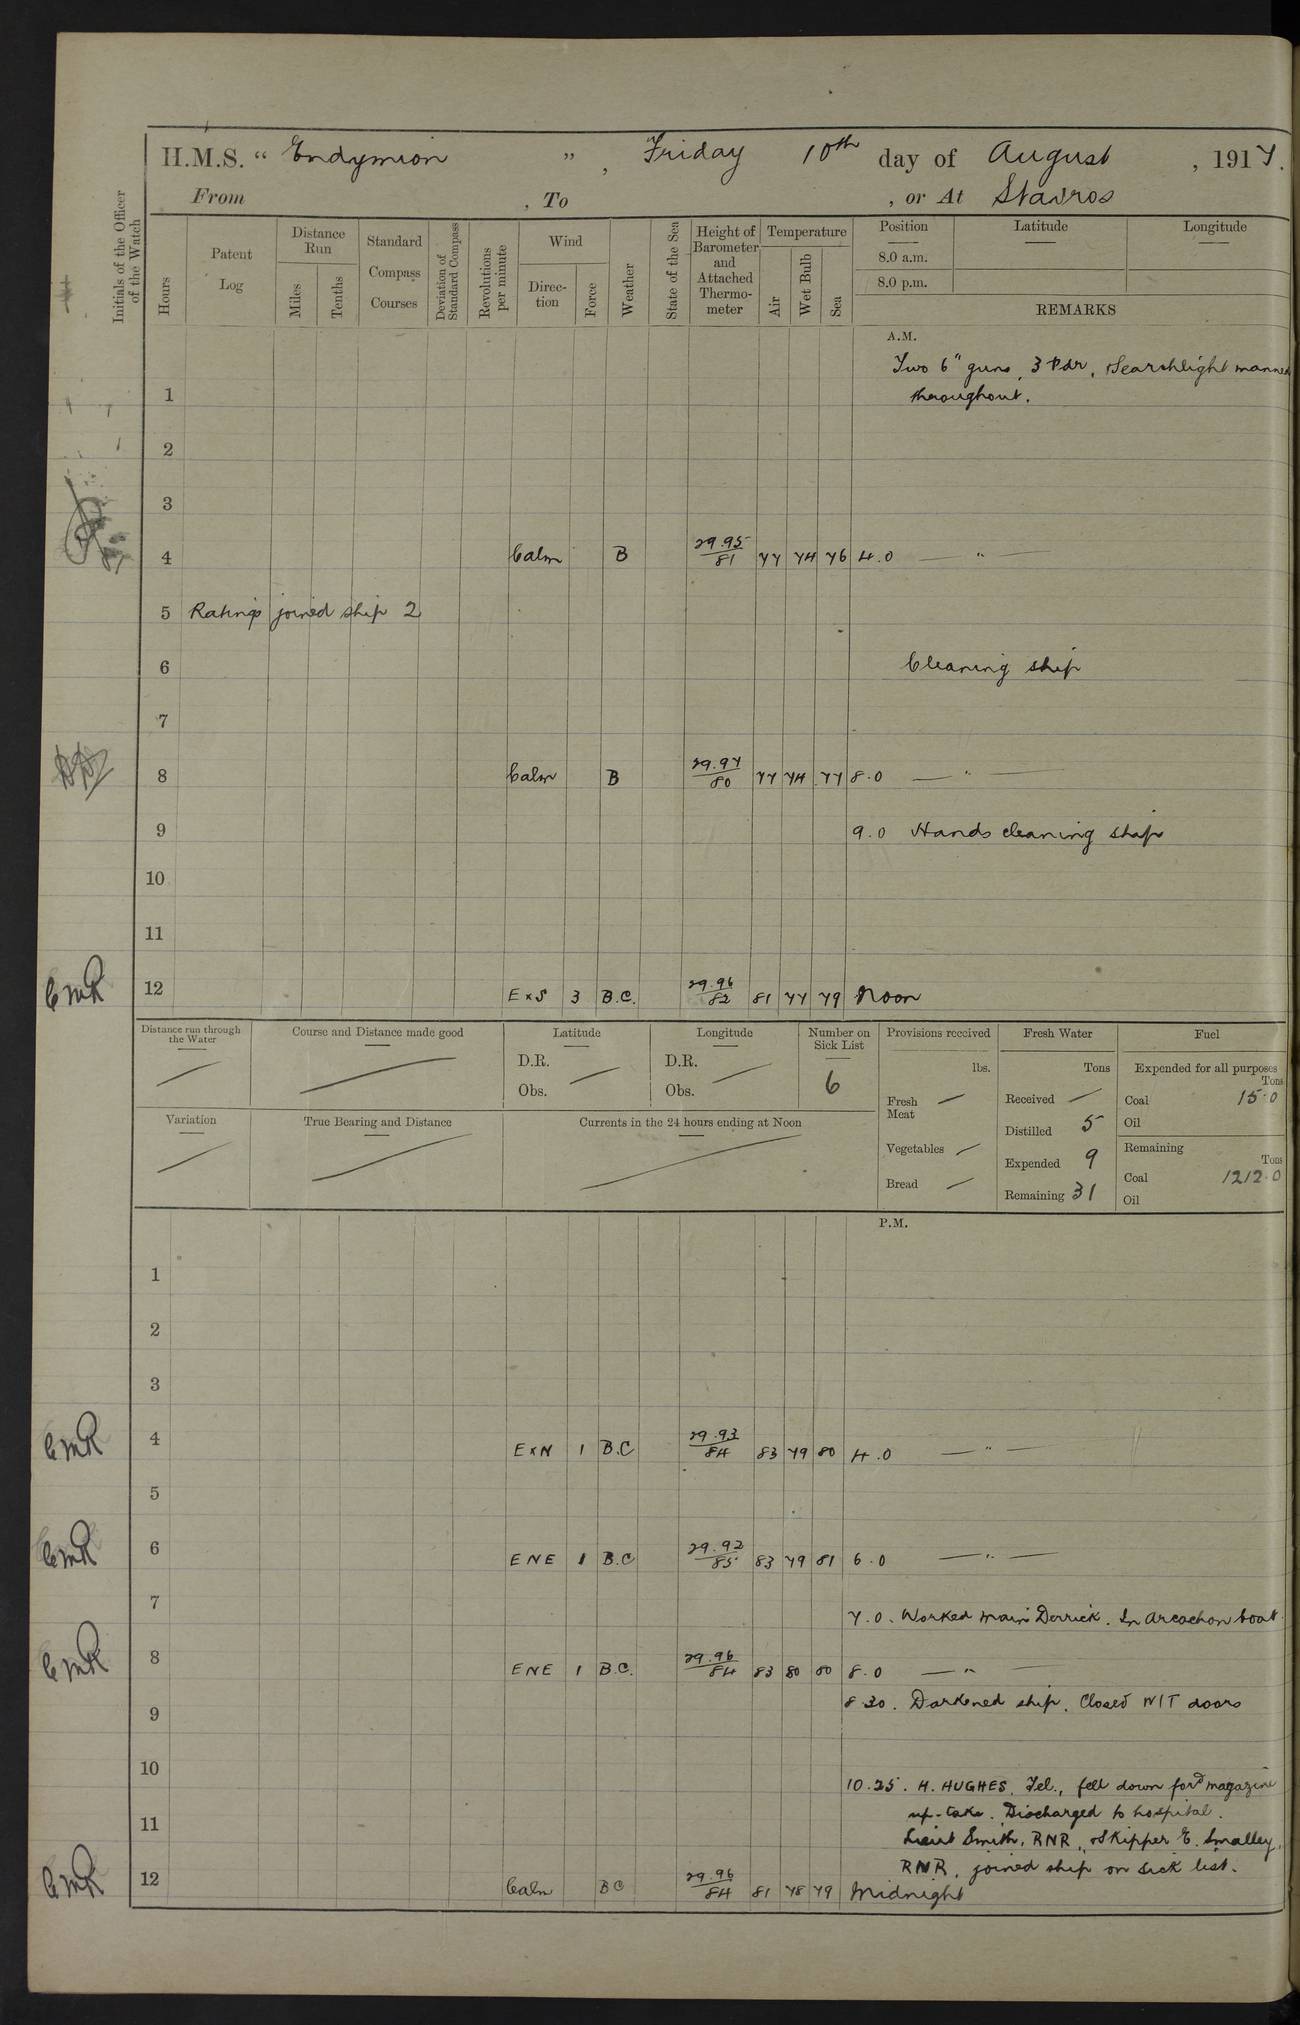 H.M.S. “ Endymion ” , Friday 10th day of August , 1917.
From , To , or At Stavros
Initials of the Officer of the Watch
Hours
Patent Log
Distance Run
Miles
Tenths
Standard Compass Courses
Deviation of Standard Compass
Revolutions per minute
Wind
Direction
Force
Weather
State of the Sea
Height of Barometer and Attached Thermometer
Temperature
Air
Wet Bulb
Sea
Position Latitude Longitude
8.0 a.m.
8.0 p.m.
REMARKS
A.M.
Two 6" guns, 3 Pdr, Searchlight manned
1 throughout.
2
3
4 Calm B 29.95/81 77 74 76 4.0 — " —
5 Ratings joined ship 2
6 Cleaning ship
7
8 Calm B 29.97/80 77 74 77 8.0 — " —
9 9.0 Hands cleaning ship
10
11
CMR 12 ExS 3 B.C. 29.96/82 81 77 79 Noon
Distance run through the Water
Course and Distance made good
Latitude
D.R.
Obs.
Longitude
D.R.
Obs.
Number on Sick List
6
Provisions received
lbs.
Fresh Meat —
Vegetables —
Bread —
Fresh Water
Tons
Received —
Distilled 5
Expended 9
Remaining 31
Fuel
Expended for all purposes
Tons
Coal 15.0
Oil
Remaining
Tons
Coal 1212.0
Oil
Variation
True Bearing and Distance
Currents in the 24 hours ending at Noon
P.M.
1
2
3
CMR 4 ExN 1 B.C 29.93/84 83 79 80 4.0 — " —
5
CMR 6 ENE 1 B.C 29.92/85 83 79 81 6.0 — " —
7 7.0. Worked main Derrick. In Arcachon boat
CMR 8 ENE 1 B.C. 29.96/84 83 80 80 8.0 — " —
8.30. Darkened ship. Closed W/T doors
9
10
10.25. H. HUGHES. Tel., fell down ford magazine
up-take. Discharged to hospital.
11 Lieut Smith, RNR, Skipper E. Smalley,
RNR, joined ship on sick list.
CMR 12 Calm BC 29.96/84 81 78 79 Midnight